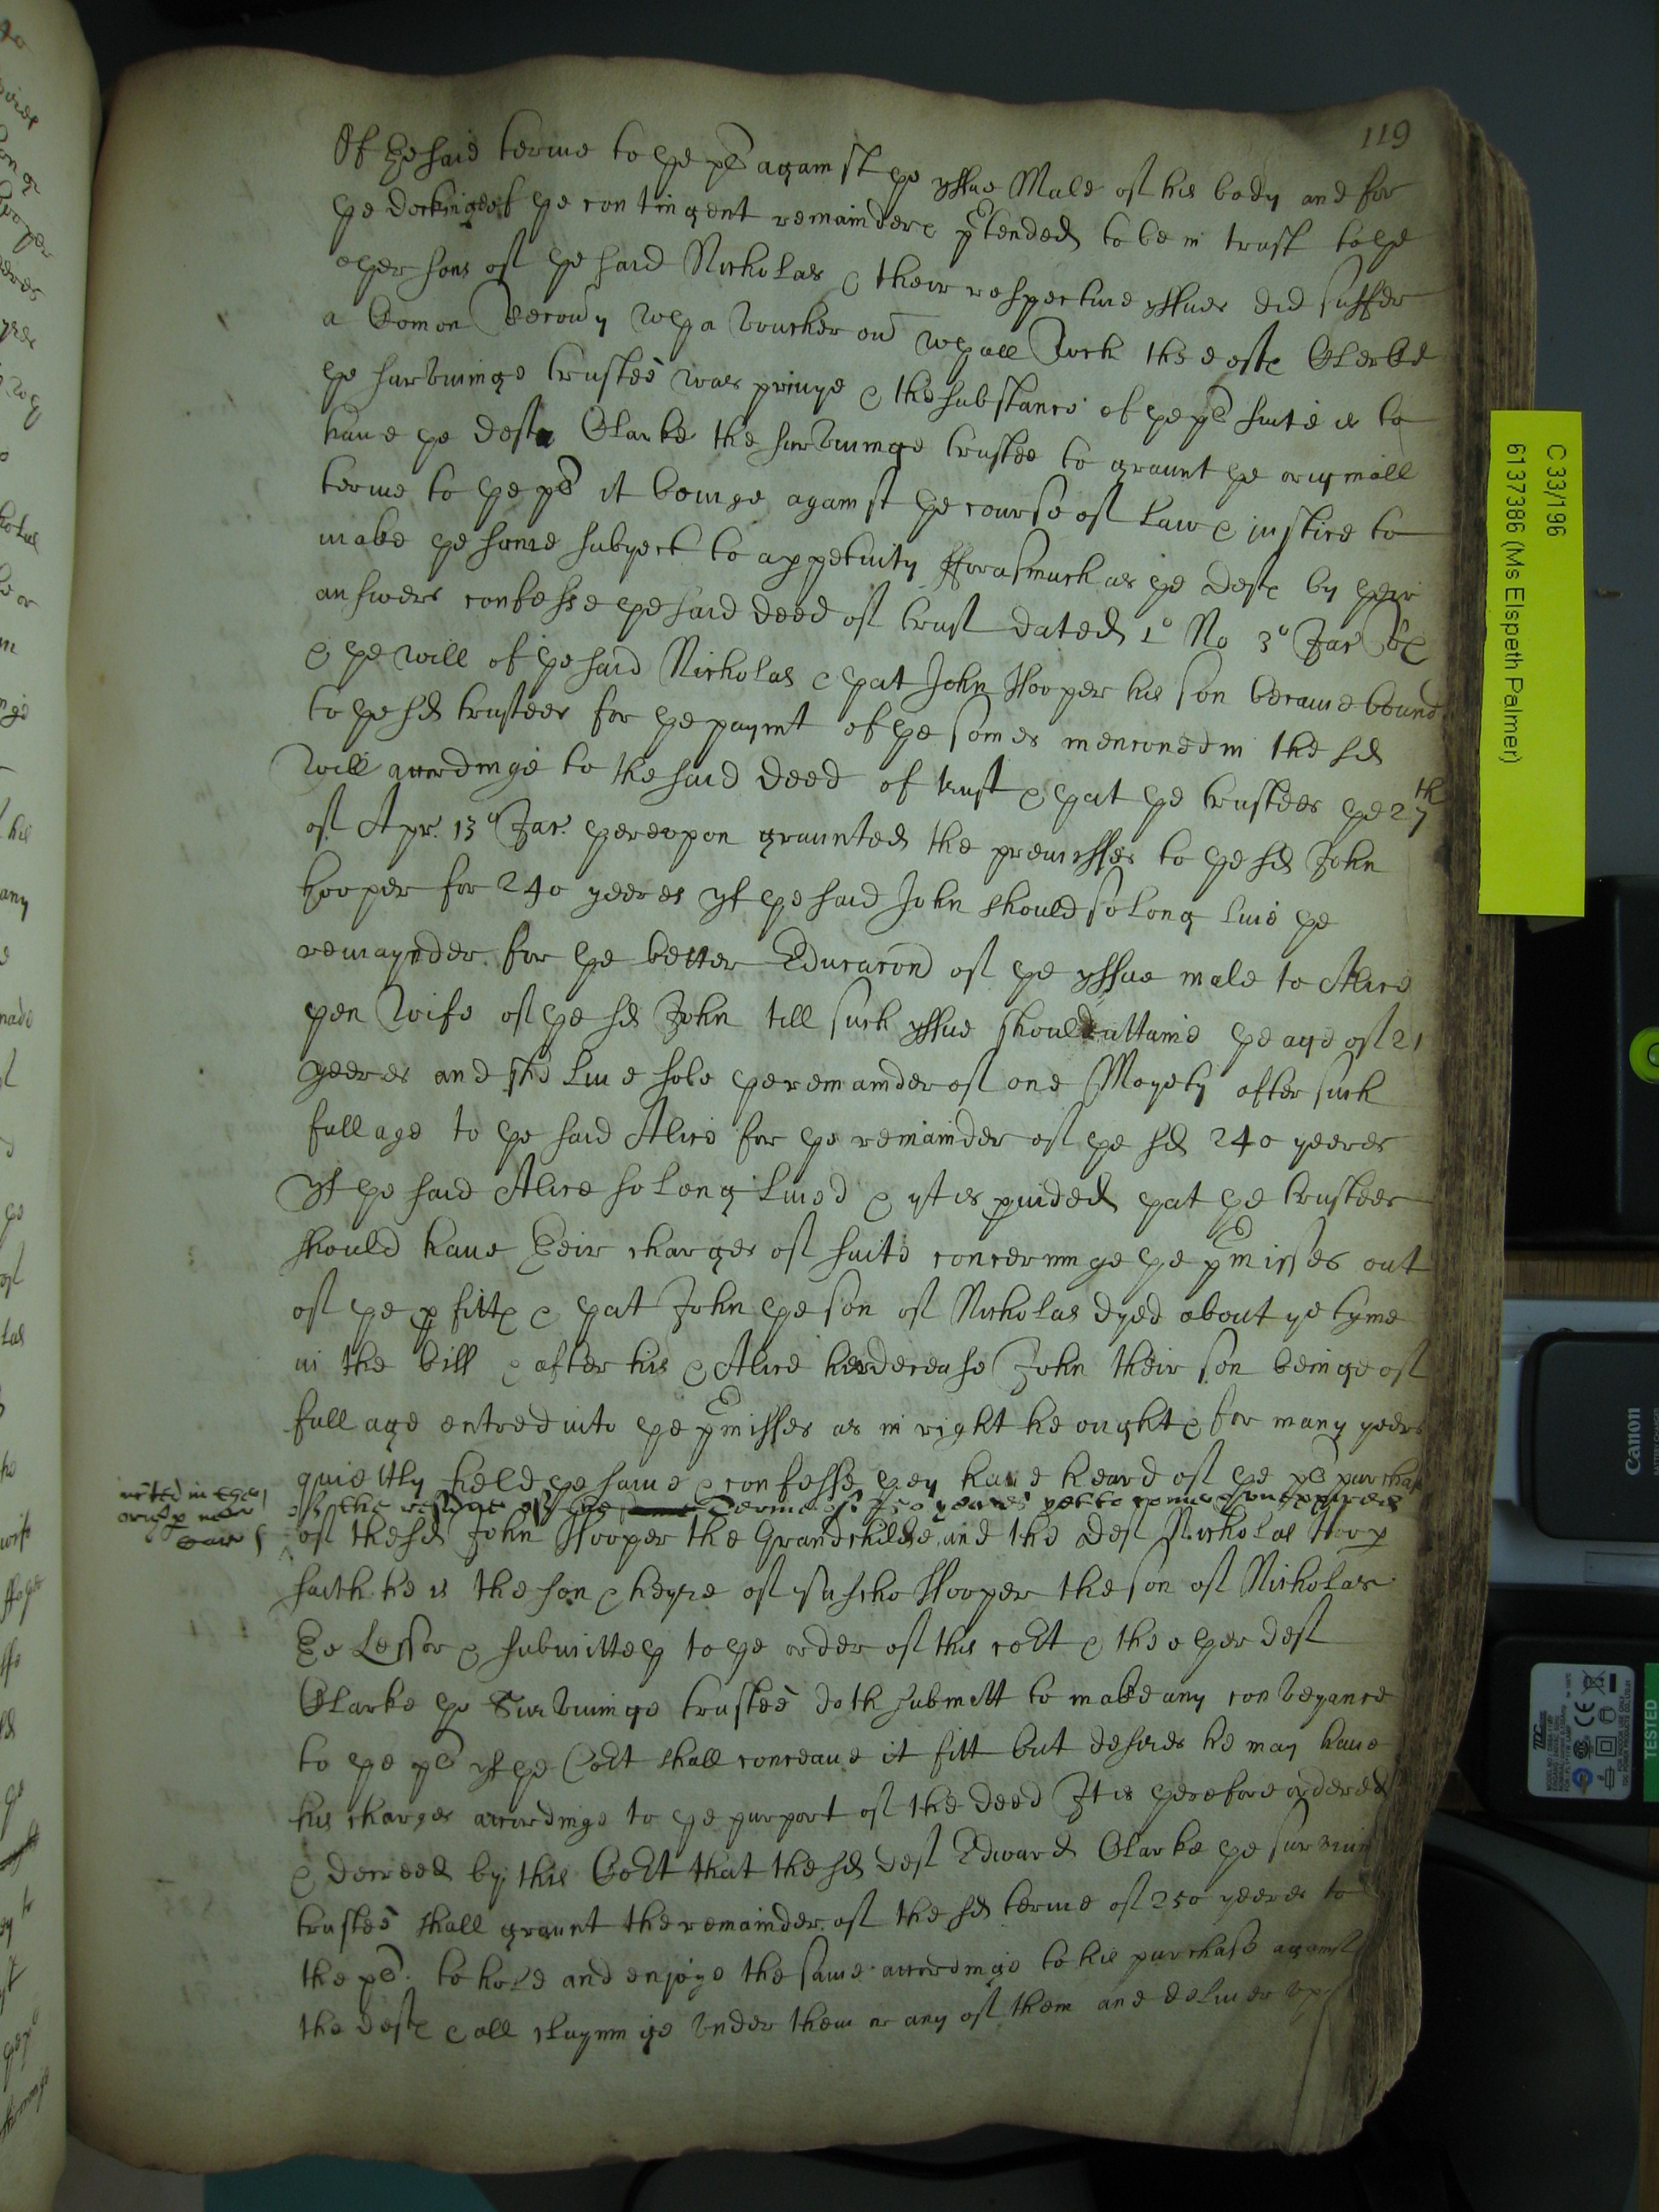 119
Of the said terme to the pl against the yssue Male of his body and for
the dockinge of the contingent remainders ptended to be in trust to the
other sons of the said Nicholas & their respective yssues did suffer
a Comon Recovry wth a voucher ov wth all wch the deftes Clerke
the survivinge trustee was privye & the substance of the pl suite is to
have the deft Clarke the survivinge trustee to graunt the originall
terme to the pl it beinge against the course of Law & justice to
make the same subject to a ppetuity fforasmuch as the deftes by their
answers confesse the said deed of trust dated 1o No 3o Jac Rs
& the will of the said Nicholas & that John Hooper his son became bound
to the sd trustees for the paymt of the somes menconed in the sd
will accordinge to the said deed of trust & that the trustees the 27th
of Apr. 13o Jac. thereupon graunted the premisses to the sd John
hooper for 240 yeeres yf the said John should so long live the
remaynder for the better Educacon of the yssue male to Alice
then wife of the sd John till such yssue should attaine the age of 21
yeeres and shd live sole the remainder of one Moyety after such
full age to the said Alice for the remainder of the sd 240 yeeres
yf the said Alice so long lived & yt is pvided that the trustees
should have their charges of suite concerninge the pmisses out
of the pfittes & that John the son of Nicholas dyed about ye tyme
in the bill & after his & Alice her decease John their son beinge of
full age entred into the pmisses as in right he ought & for many yeers
quiettly held the same & confesse they have heard of the pl purchase
of the residue of the terme of 250 yeares yet to come & unexpired
of the sd John Hooper the Grandchilde and the deft Nicholas Hoop
saith he is the son & heyre of Hooper the son of Nicholas
the Lessor & submitteth to the order of this cort & the other deft
Clarke the Survivinge trustee doth submitt to make any conveyance
to the pl yf the Cort shall conceave it fitt but desires he may have
his charges accordinge to the purport of the deed It is therefore ordered
& decreed by this Cort that the sd deft Edward Clarke the survivin
trustee shall graunt the remainder of the sd terme of 250 yeeres to
the pl. to hold and enjoye the same accordinge to his purchase against
the deftes & all clayminge under them or any of them and deliver up
C 33/196
6137386 (Ms Elspeth Palmer)
Canon
TESTED